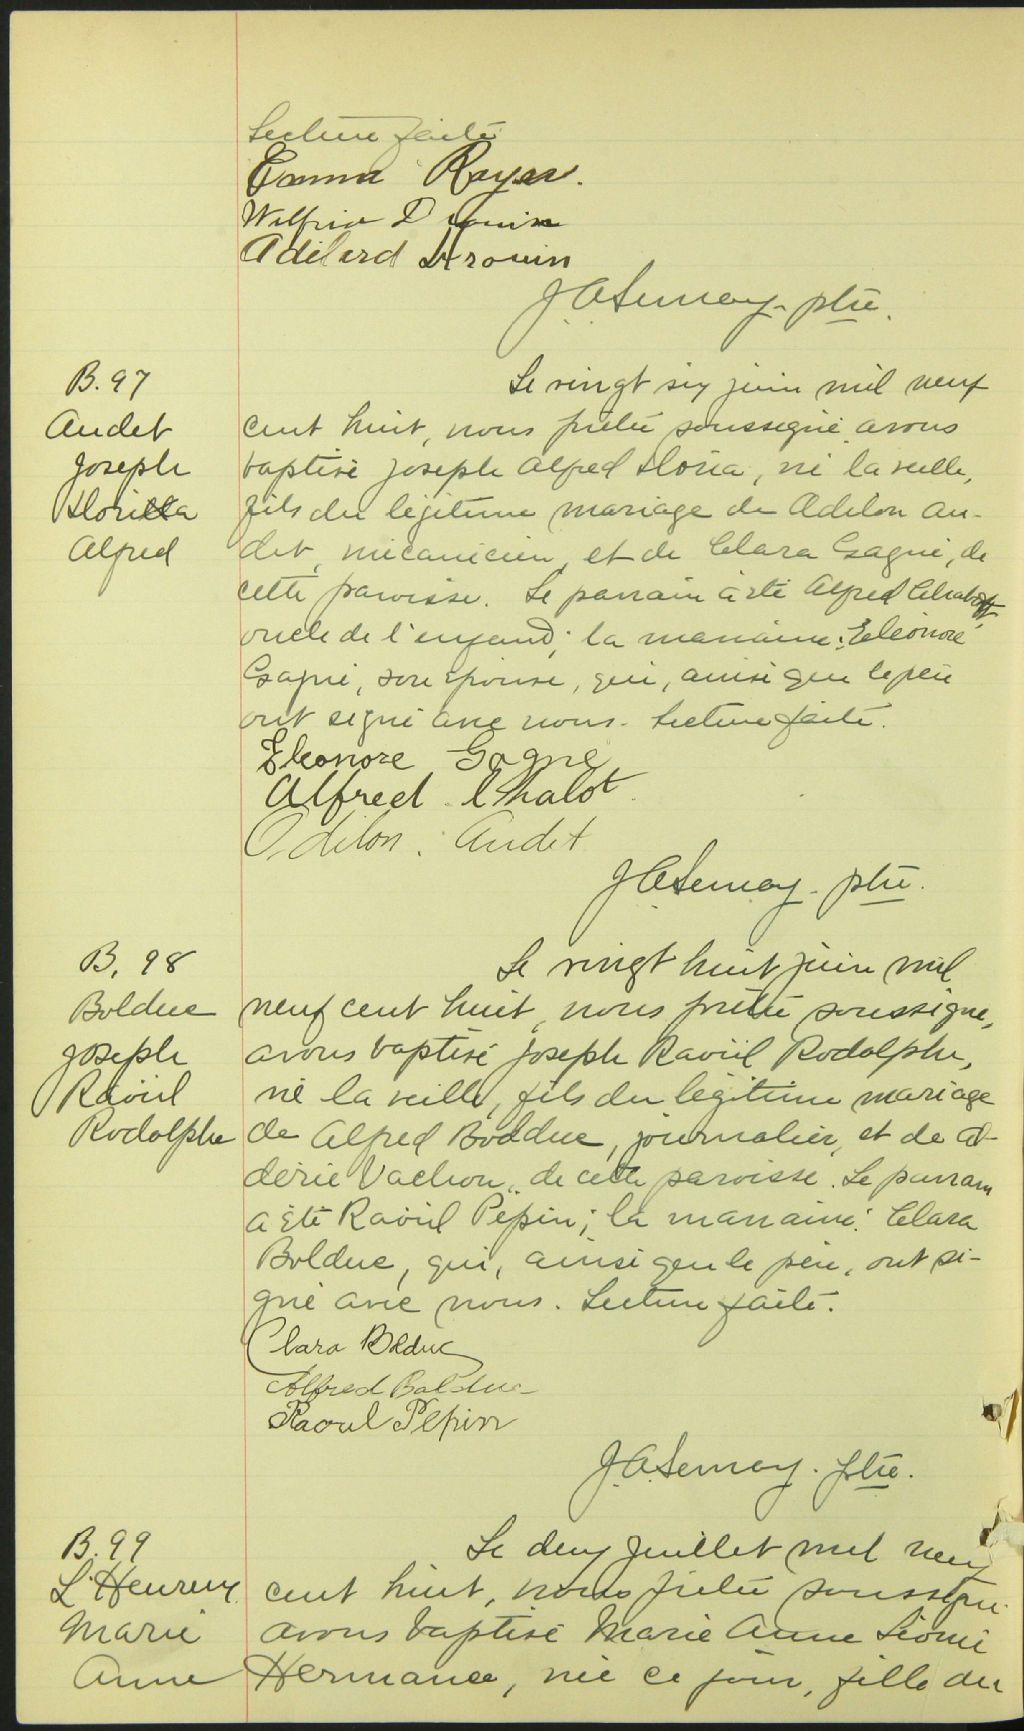 Lecture faite
Emma Royer.
Wilfrid Drouin
Adélard Drouin
J. A. Lemay ptre.
B. 97
Audet
Joseph
Alfred
Le vingt six juin mil neuf
cent huit, nous prêtre soussigné avons
baptisé Joseph Alfred Floria, né la veille,
fils du légitime mariage de Odilon Au-
det, mécanicien, et de Clara Gagné, de
cette paroisse. Le parrain a été Alfred Chabot,
oncle de l'enfant; la marraine: Eléonore
Gagné, son épouse, qui, ainsi que le père
ont signé avec nous. Lecture faite.
Eleonore Gagné
Alfred Chabot
Odilon Audet
J. A. Lemay ptre.
B. 98
Bolduc
Joseph
Raoül
Rodolphe
Le vingt huit juin mil
neuf cent huit, nous prêtre soussigné,
avons baptisé Joseph Raoül Rodolphe,
né la veille, fils du légitime mariage
de Alfred Bolduc, journalier, et de
Vachon, de cette paroisse. Le parrain
a été Raoül Pépin; la marraine: Clara
Bolduc, qui, ainsi que le père, ont si-
gné avec nous. Lecture faite.
Clara Bolduc
Alfred Bolduc
Raoul Pépin
J. A. Lemay. ptre.
B. 99
L'Heureux
Marie
Anne
Le deux juillet mil neuf
cent huit, nous prêtre soussigné
avons baptisé Marie Anne
Hermance, née ce jour, fille du